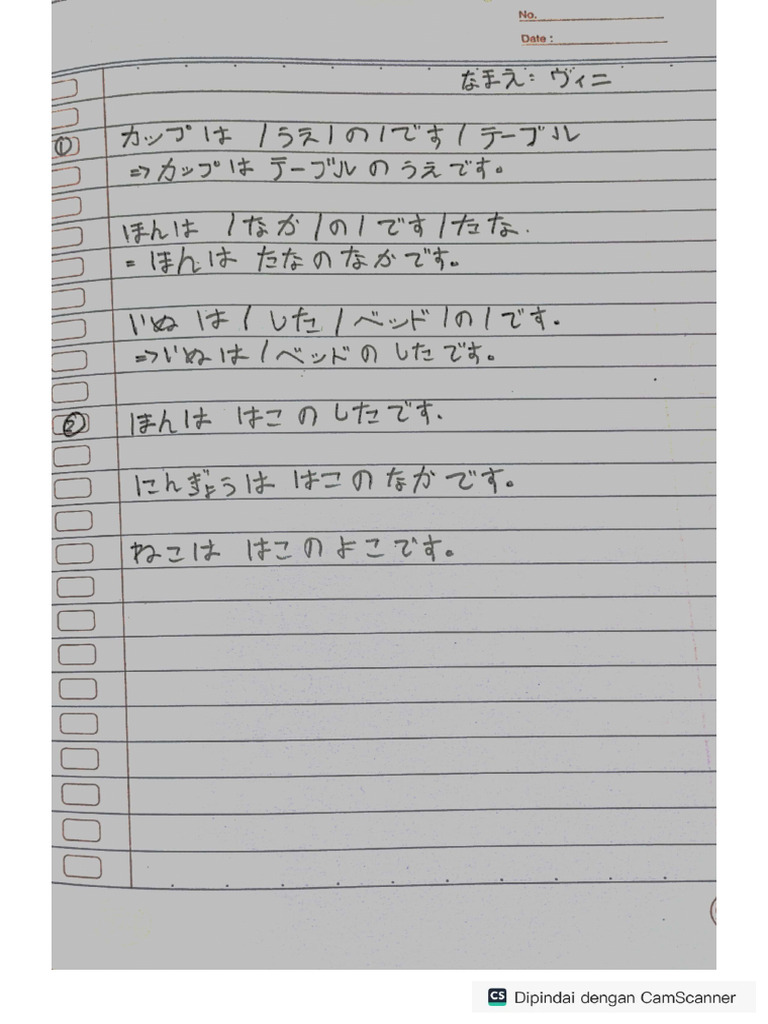 No.
Date :
なまえ: ヴィニ
① カップは /うえ/の/です/ テーブル
⇒ カップは テーブル の うえです。
ほんは /なか/の/です/たな.
= ほんは たなのなかです。
いぬ は/ した/ ベッド/の/です.
⇒いぬは/ベッドの したです。
② ほんは はこ の したです.
にんぎょうは はこの なかです。
ねこは はこの よこです。
CS Dipindai dengan CamScanner